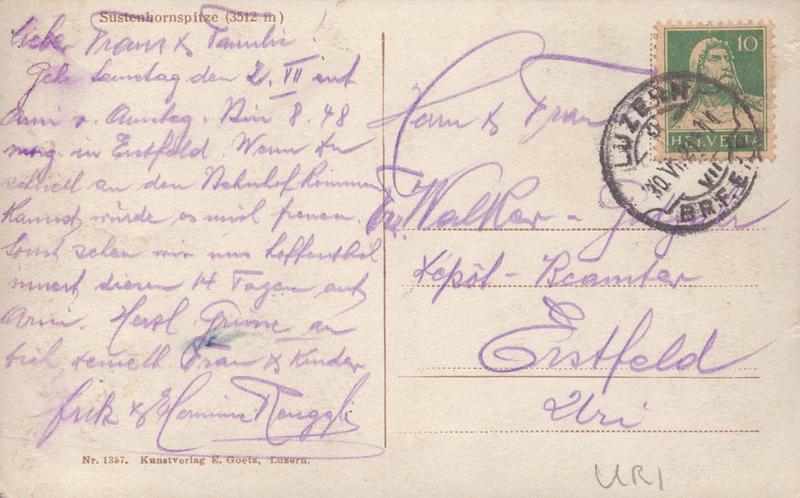 Sustenhornspitze (3512 m)
Lieber Franz & Familie!
Gehe Samstag den 2. VII mit
Arni v. Amsteg. Bin 8.48
morg. in Erstfeld. Wenn du
schnell an den Bahnhof kommen
kannst würde es mich freuen.
Sonst sehen wir uns hoffentlich
innert diesen 14 Tagen auf
Arni. Herzl Grüsse an
dich, deine Frau & Kinder
Nr. 1357. Kunstverlag E. Goetz, Luzern.
10
HELVETIA
LUZERN
30.VI.
VIII
BRF.EXP.
Herrn & Frau
Fr. Walker -
Dépôt - Beamter
Erstfeld
Uri
URI